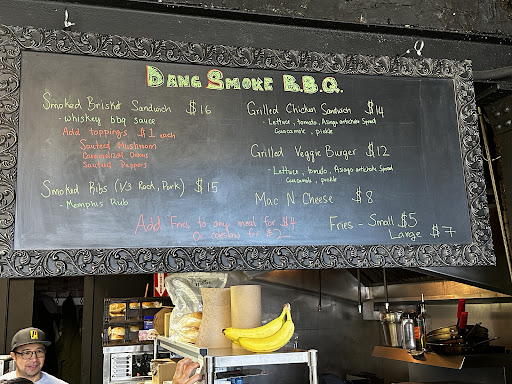 DANG SMOKE B.B.Q.
Smoked Brisket Sandwich $16
- whiskey bbq sauce
Add toppings $1 each
Sauteed Mushroom
Caramelized Onions
Sauteed Peppers
Smoked Ribs (1/3 Rack, Pork) $15
- Memphis Rub
Add Fries to any meal for $4
Or coleslaw for $
Grilled Chicken Sandwich $14
- Lettuce, tomato, Asiago artichoke Spread
Guacamole, pickle
Grilled Veggie Burger $12
- Lettuce, tomato, Asiago artichoke Spread
Guacamole, pickle
Mac N Cheese $8
Fries - Small $5
Large $7